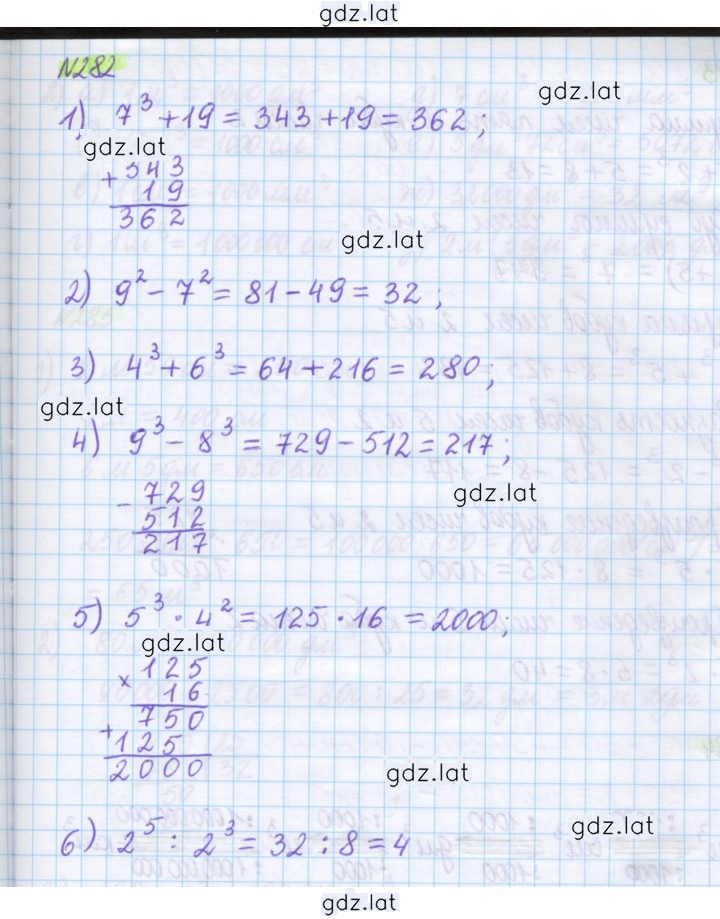 gdz.lat
№282
gdz.lat
1) 7³ + 19 = 343 + 19 = 362;
gdz.lat
+ 343
19
362
gdz.lat
2) 9² - 7² = 81 - 49 = 32;
3) 4³ + 6³ = 64 + 216 = 280;
gdz.lat
4) 9³ - 8³ = 729 - 512 = 217;
- 729
512
217
gdz.lat
5) 5³ · 4² = 125 · 16 = 2000;
gdz.lat
× 125
16
750
+ 125
2000
gdz.lat
gdz.lat
6) 2⁵ : 2³ = 32 : 8 = 4
gdz.lat